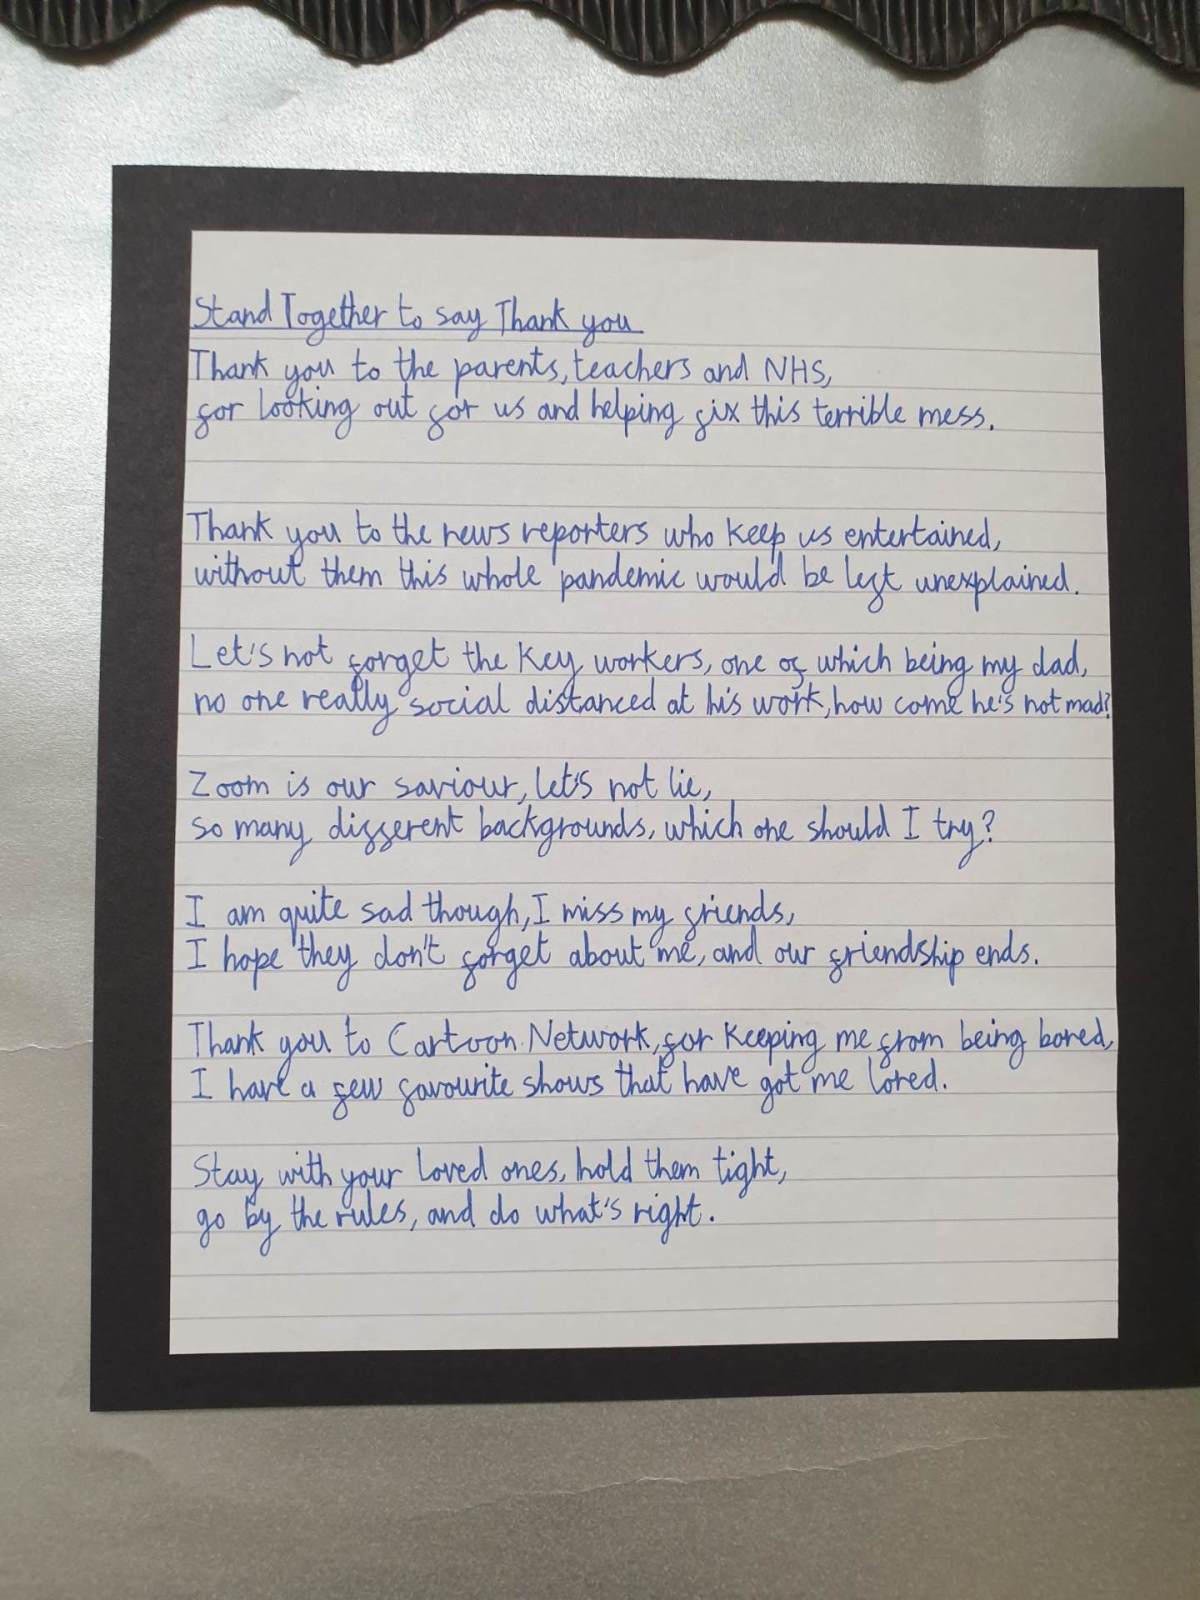 Stand Together to say Thank you
Thank you to the parents, teachers and NHS,
for looking out for us and helping fix this terrible mess.
Thank you to the news reporters who keep us entertained,
without them this whole pandemic would be left unexplained.
Let's not forget the key workers, one of which being my dad,
no one really social distanced at his work, how come he's not mad?
Zoom is our saviour, let's not lie,
so many different backgrounds, which one should I try?
I am quite sad though, I miss my friends,
I hope they don't forget about me, and our friendship ends.
Thank you to Cartoon Network, for keeping me from being bored,
I have a few favourite shows that have got me lored.
Stay with your loved ones, hold them tight,
go by the rules, and do what's right.